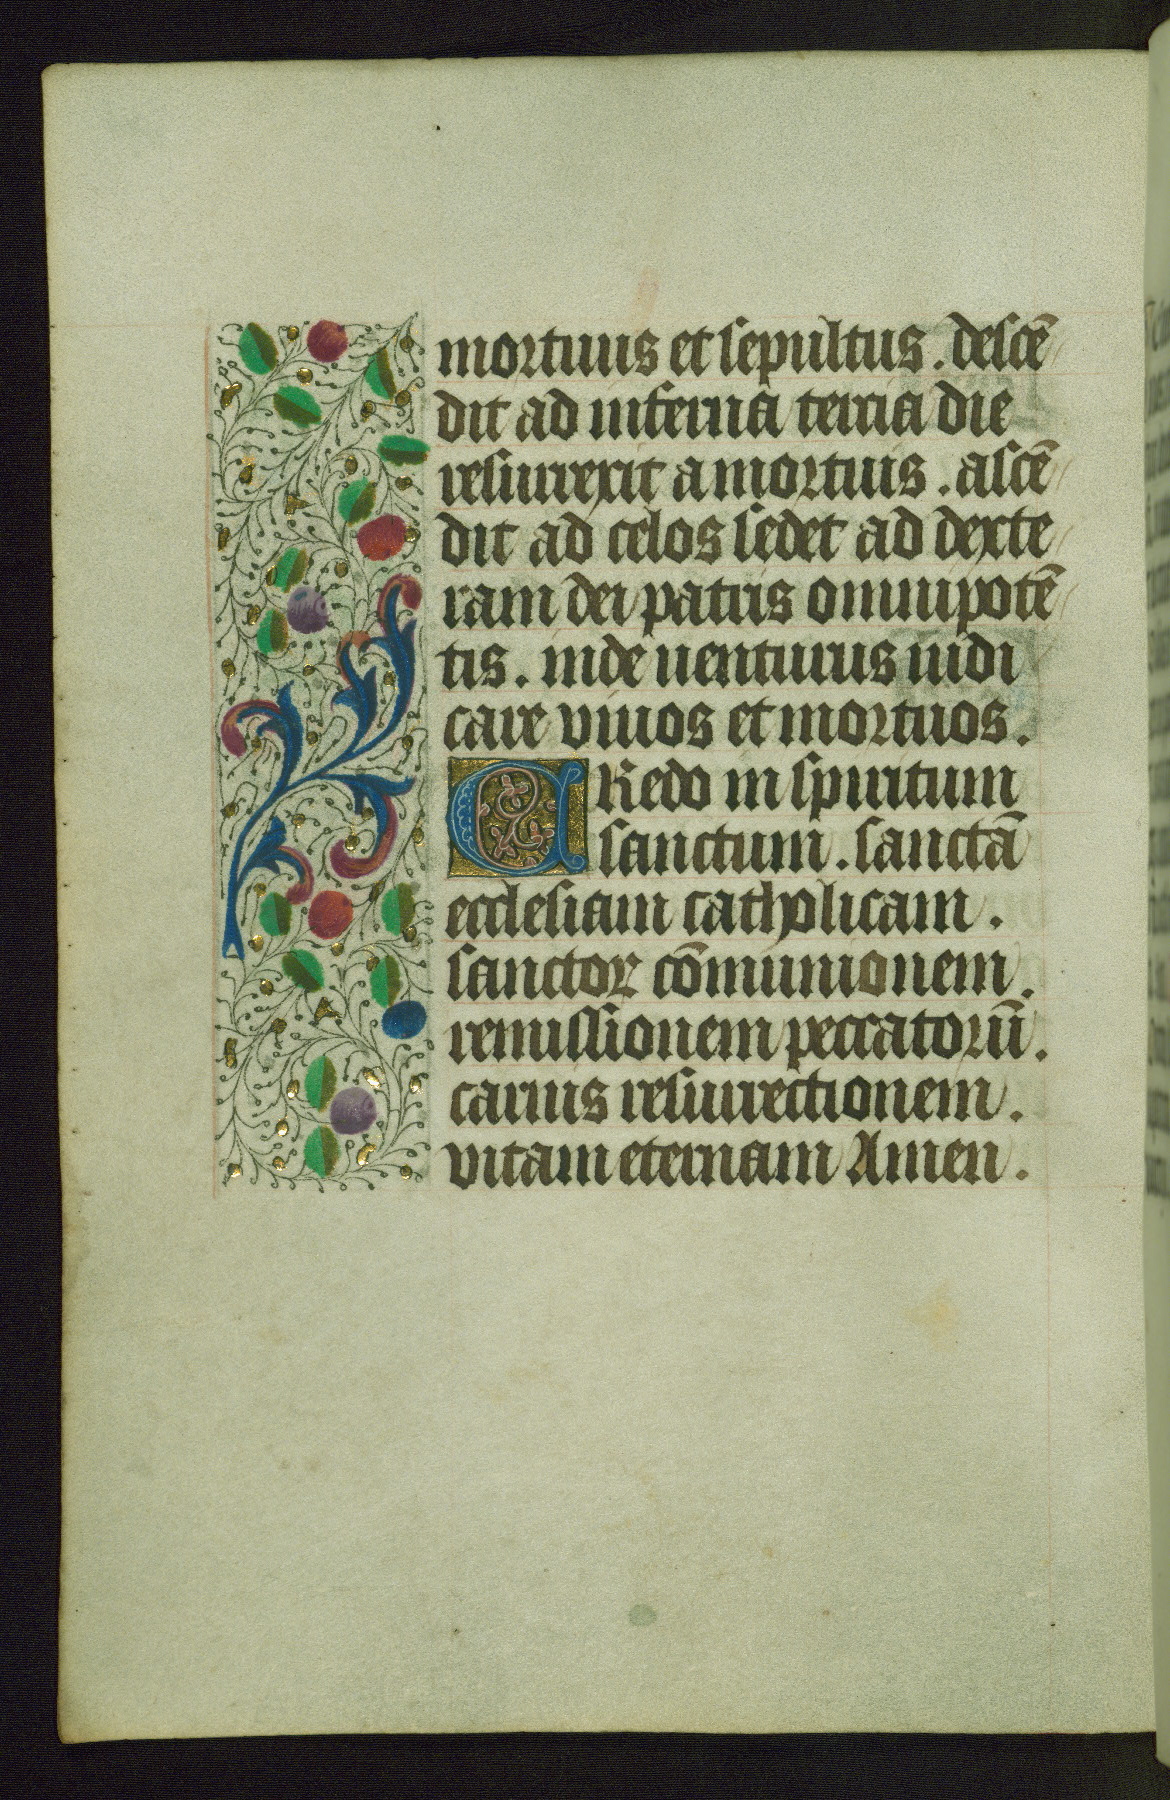 mortuus et sepultus . descē
dit ad inferna tercia die
resurrexit a mortuis . ascē
dit ad celos sedet ad dexte
ram dei patris omnipotē
tis . inde uenturus iudi
care viuos et mortuos .
CRedo in spiritum
sanctum . sanctā
ecclesiam catholicam .
sanctoꝝ cōmunionem .
remissionem peccatorū .
carnis resurrectionem .
vitam eternam Amen .